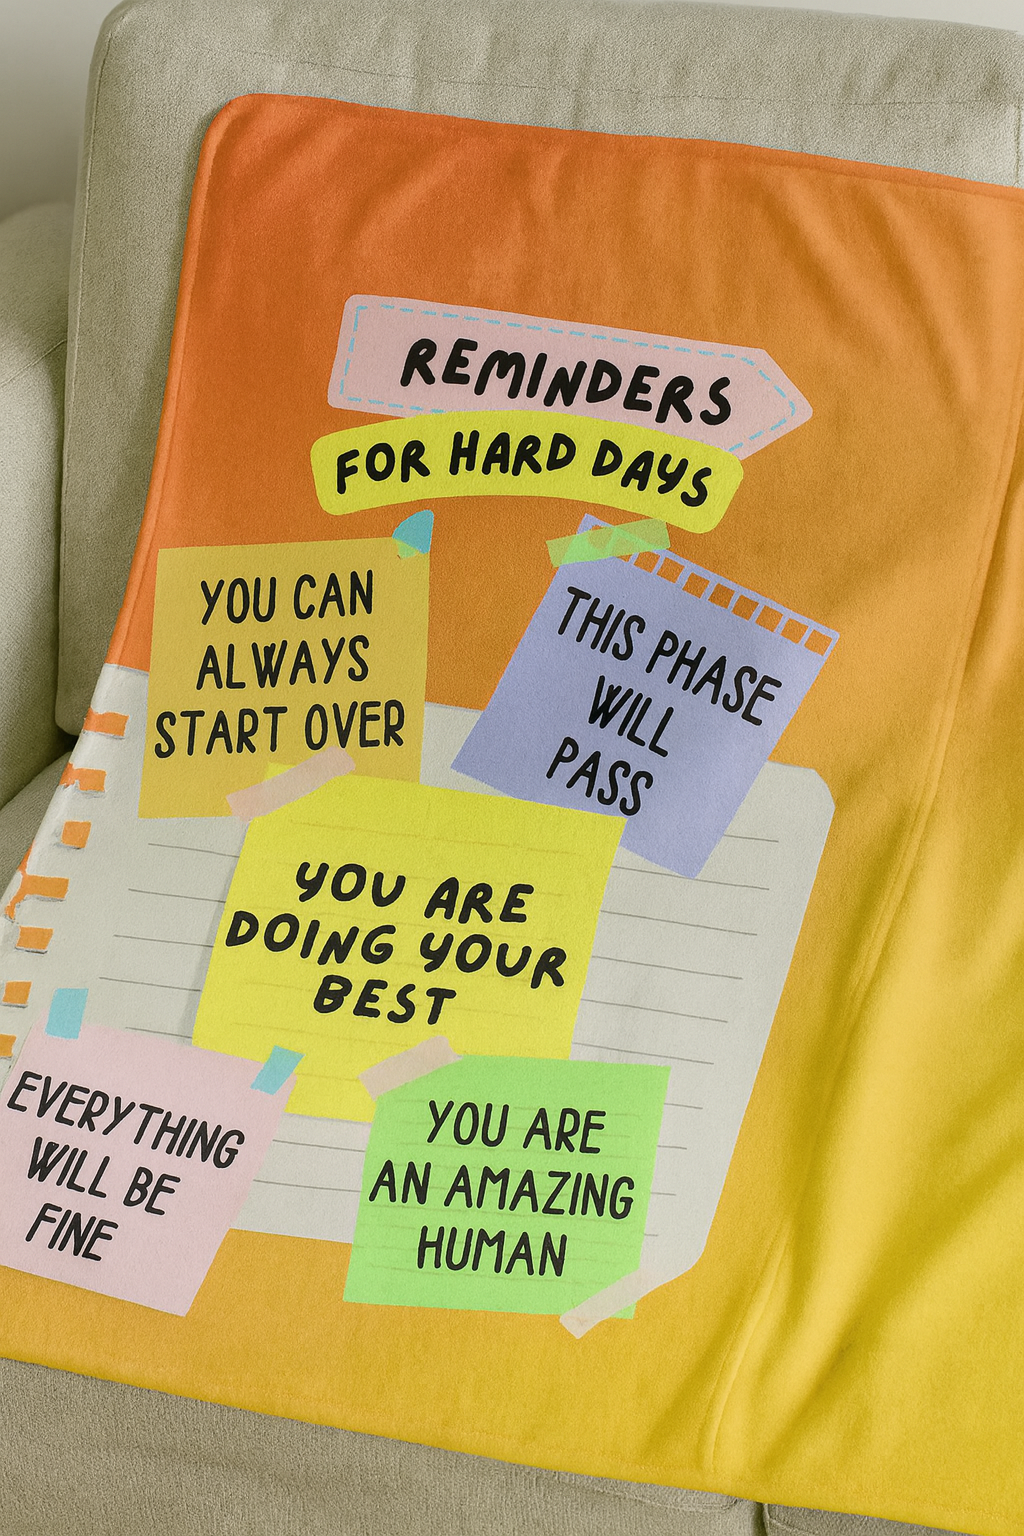 REMINDERS
FOR HARD DAYS
YOU CAN
ALWAYS
START OVER
THIS PHASE
WILL
PASS
YOU ARE
DOING YOUR
BEST
EVERYTHING
WILL BE
FINE
YOU ARE
AN AMAZING
HUMAN